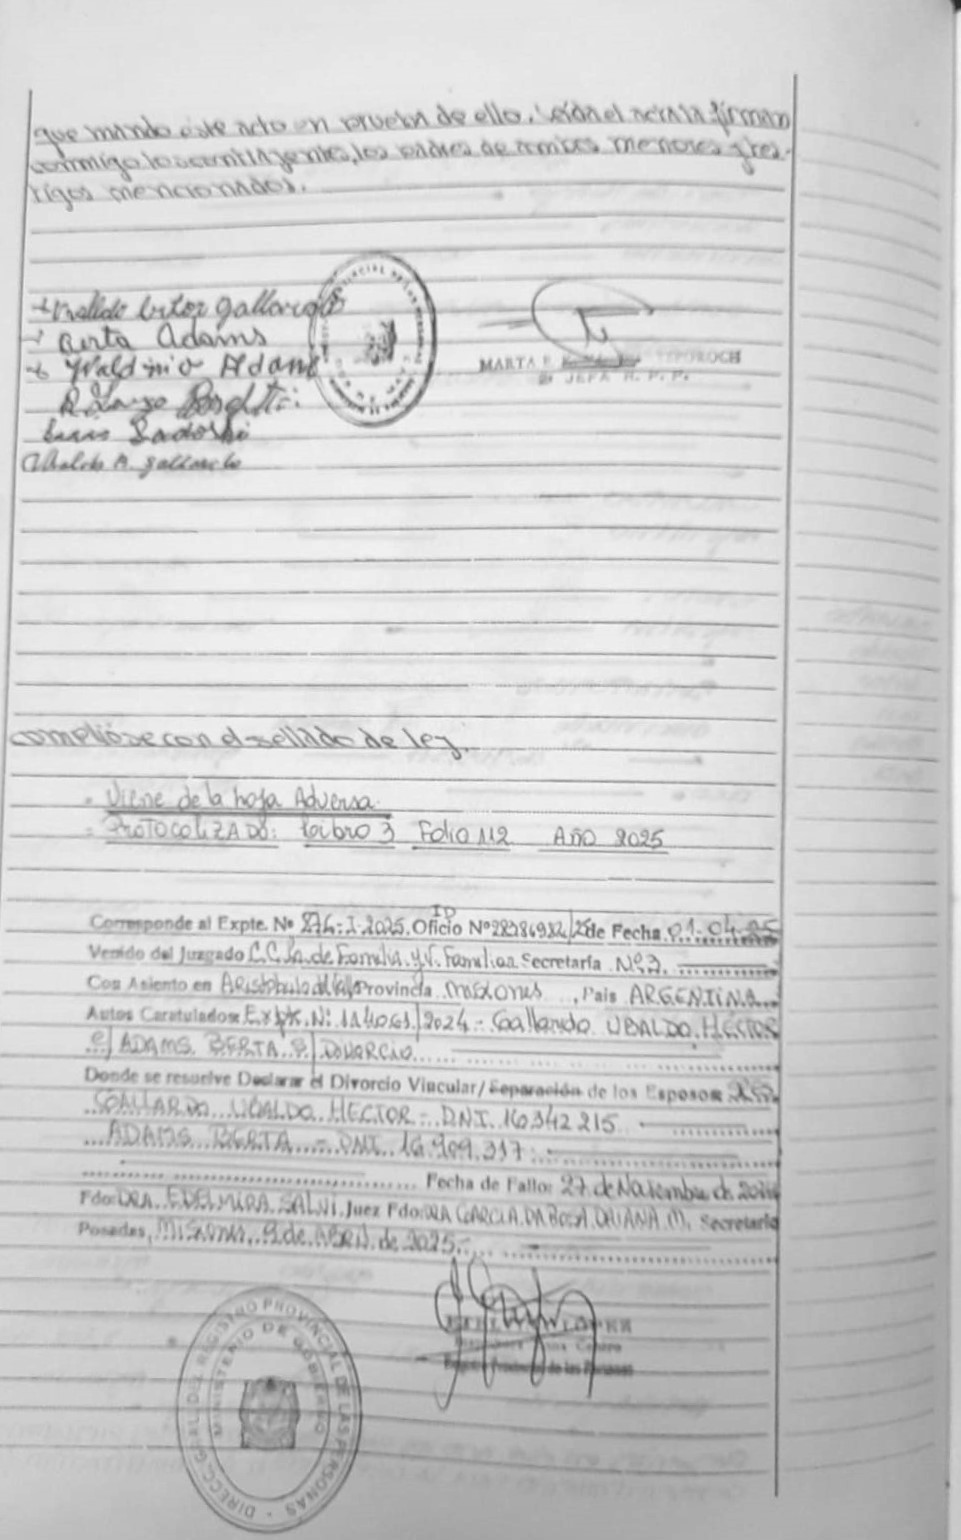 que mando este acto en prueba de ello. Leída el acta la firman
conmigo los contrayentes, los padres de ambos menores y tes-
tigos mencionados.
Hector Gallardo
Berta Adams
Waldino Adam
Sadoski
Gallardo
MARTA
JEFA R. P. P.
cumplióse con el sellado de ley.
Viene de la hoja Adversa.
PROTOCOLIZADO: Libro 3 Folio 112 AÑO 2025
Corresponde al Expte. Nº 274-I-2025. ID Oficio Nº 28386932/25 de Fecha 01-04-25
Venido del Juzgado de Familia y V. Familiar Secretaría Nº 2.
Con Asiento en Aristóbulo del Valle Provincia Misiones, País ARGENTINA.
Autos Caratulados: Expte. Nº 114061/2024 - Gallardo UBALDO HECTOR
C/ ADAMS BERTA S/ DIVORCIO
Donde se resuelve Declarar el Divorcio Vincular/Separación de los Esposos
GALLARDO UBALDO HECTOR - DNI 16342215
ADAMS BERTA - DNI 16.909.317
Fecha de Fallo: 27 de Noviembre de 2024
Fdo: DRA. EDELMIRA SALVI Juez Fdo: DRA GARCIA DA ROSA DAIANA M. Secretario
Posadas, Misiones, 9 de ABRIL de 2025.
Registro Provincial de las Personas
DIRECC. GRAL. DEL REGISTRO PROVINCIAL DE LAS PERSONAS
MINISTERIO DE GOBIERNO